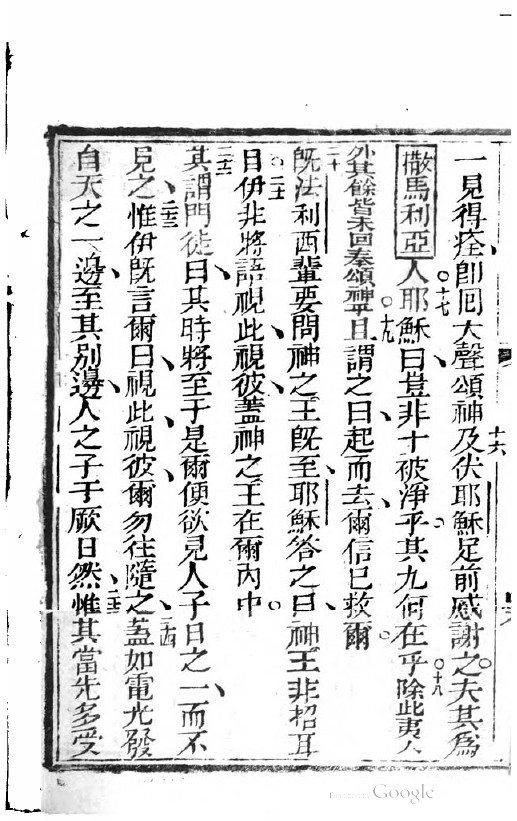 一見得痊即囘大聲頌神十六及伏耶穌足前感謝之夫其為
撒馬利亞人十七耶穌曰豈非十被凈乎其九何在乎十八除此夷人
外其餘皆未回奉頌神乎十九且謂之曰起而去爾信已救爾
二十既法利西輩要問神之王既至耶穌答之曰神王非招耳
目二一伊非將語視此視彼蓋神之王在爾內中
二二其謂門徒曰其時將至于是爾便欲見人子日之一而不
見之二三惟伊既言爾曰視此視彼爾勿往隨之二四蓋如電光發
自天之一邊至其別邊人之子于厥日然二五惟其當先多受
Digitized by Google